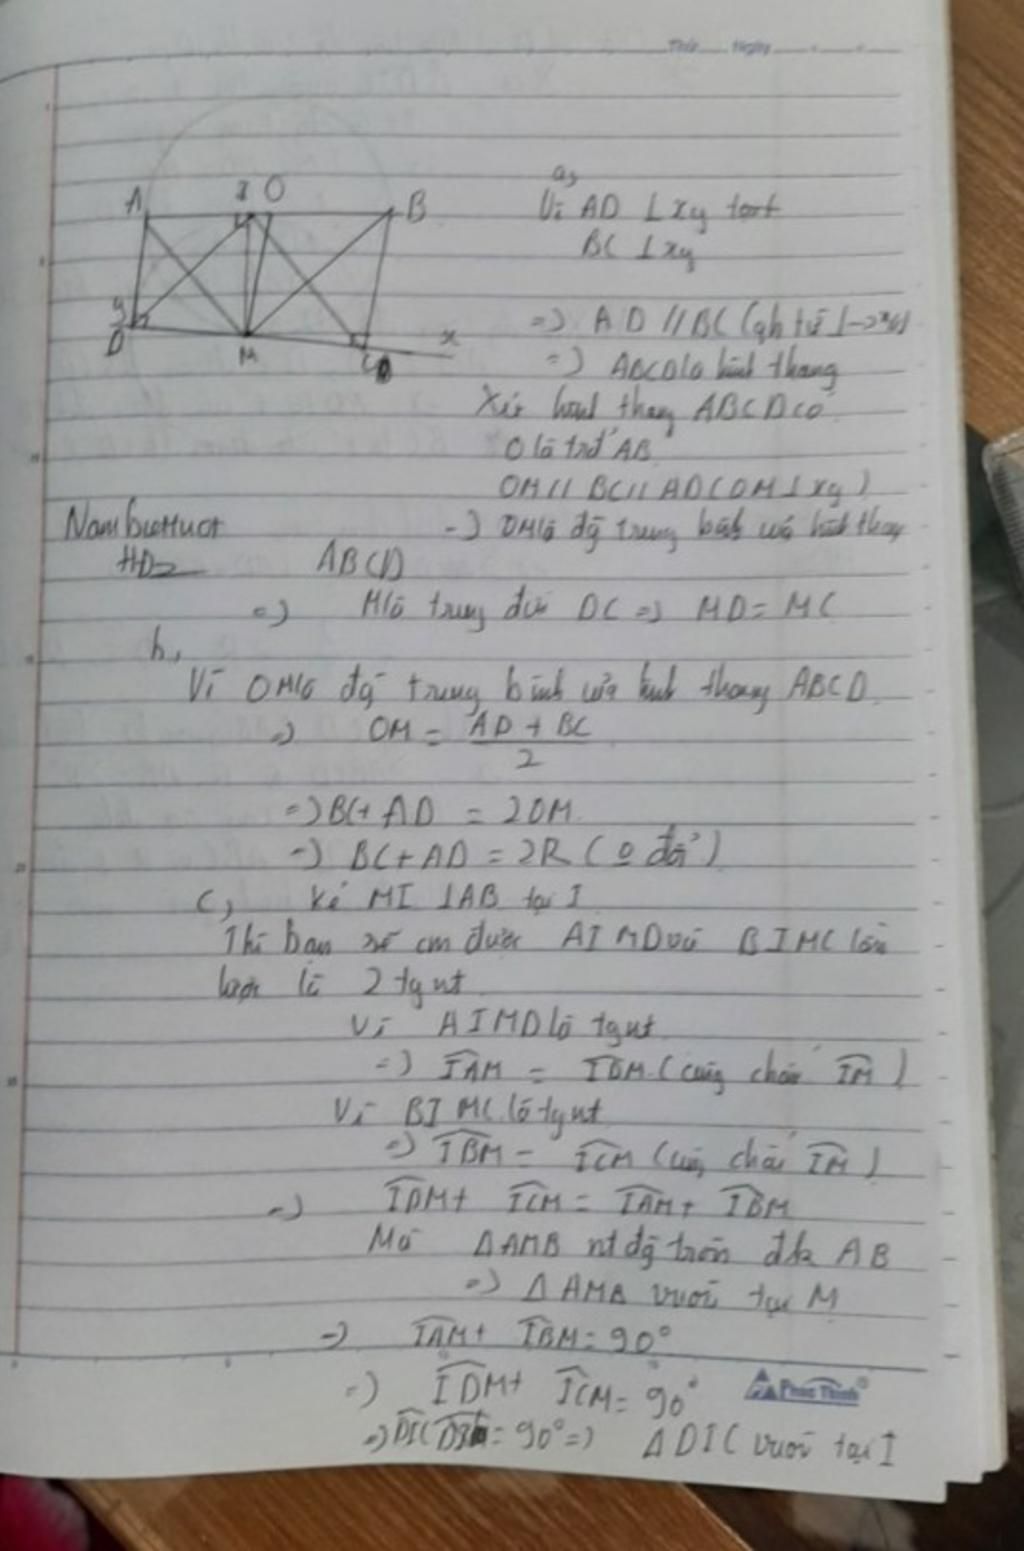 Thứ Ngày
A I O B
y D M C x
a,
Vì AD ⊥ xy
BC ⊥ xy
=> AD // BC (qh từ ⊥ -> //)
=> ABCD là hình thang
Xét hình thang ABCD có
O là trđ AB
OM // BC // AD (OM ⊥ xy)
-) OM là đg trung bình của hình thang
ABCD
=) M là trung điểm DC => MD = MC
b,
Vì OM là đg trung bình của hình thang ABCD
=) OM = AD + BC / 2
=) BC + AD = 2OM
=) BC + AD = 2R (O đổi)
c, Kẻ MI ⊥ AB tại I
Thì bạn sẽ cm được AIMD và BIMC lần
lượt là 2 tg nt
Vì AIMD là tgnt
=) IAM = IDM (cùng chắn IM)
Vì BIMC là tgnt
=) IBM = ICM (cùng chắn IM)
=) IDM + ICM = IAM + IBM
Mà ΔAMB nt đg tròn đk AB
=) ΔAMB vuông tại M
=) IAM + IBM = 90°
=) IDM + ICM = 90°
=) DIC = 90° => ΔDIC vuông tại I
Phúc Thịnh